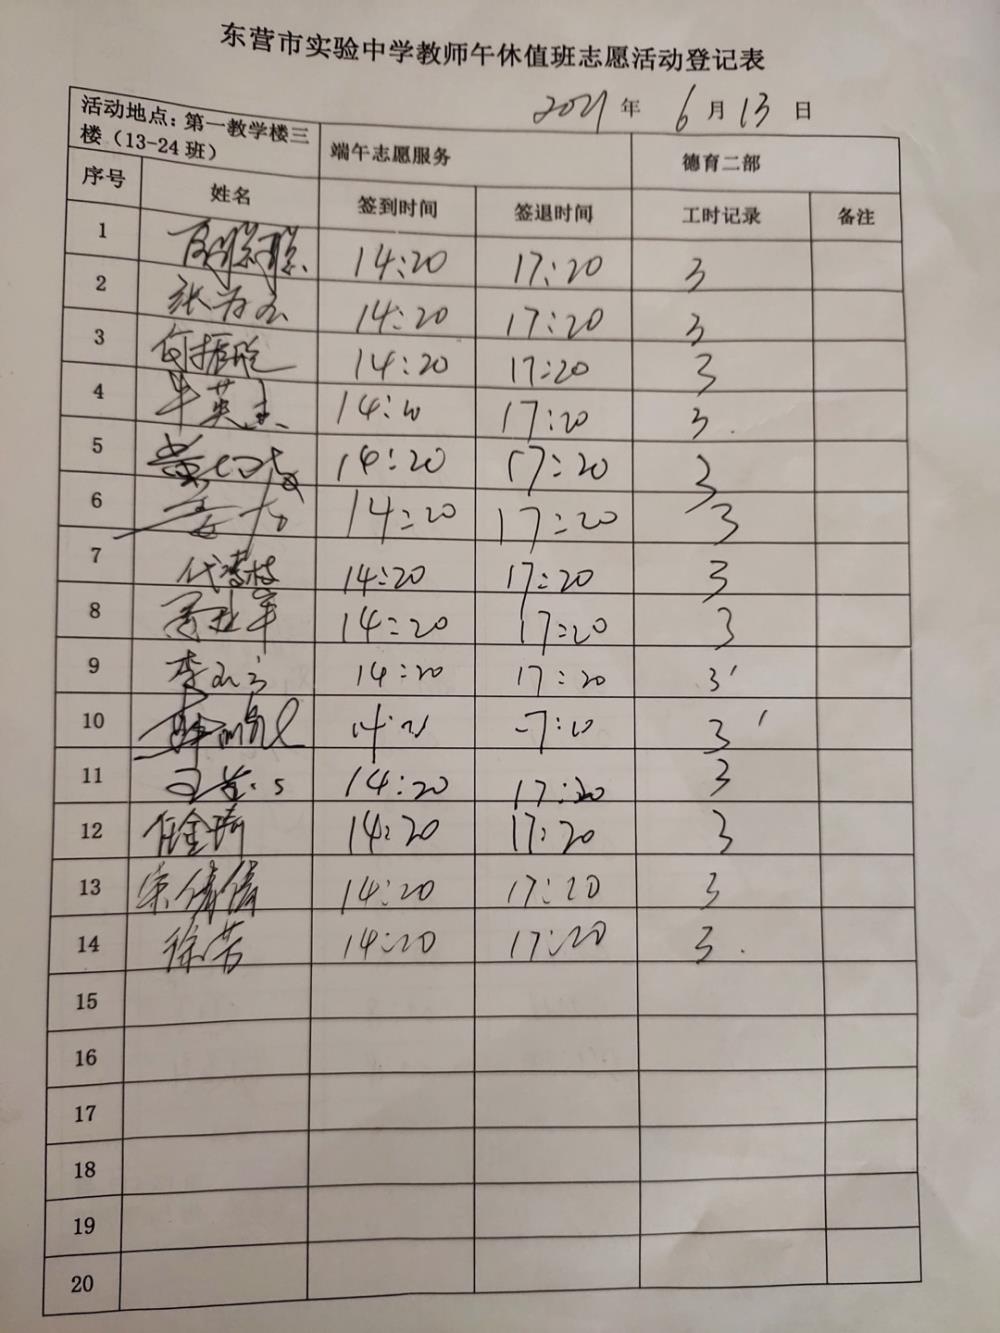 东营市实验中学教师午休值班志愿活动登记表
2021年 6月13日
活动地点:第一教学楼三楼(13-24班) 端午志愿服务 德育二部
序号 姓名 签到时间 签退时间 工时记录 备注
1 14:20 17:20 3
2 14:20 17:20 3
3 14:20 17:20 3
4 牛英 14:20 17:20 3
5 黄 14:20 17:20 3
6 14:20 17:20 3
7 14:20 17:20 3
8 14:20 17:20 3
9 李 14:20 17:20 3
10 3
11 王 14:20 17:20 3
12 任金琦 14:20 17:20 3
13 宋倩倩 14:20 17:20 3
14 徐芳 14:20 17:20 3
15
16
17
18
19
20